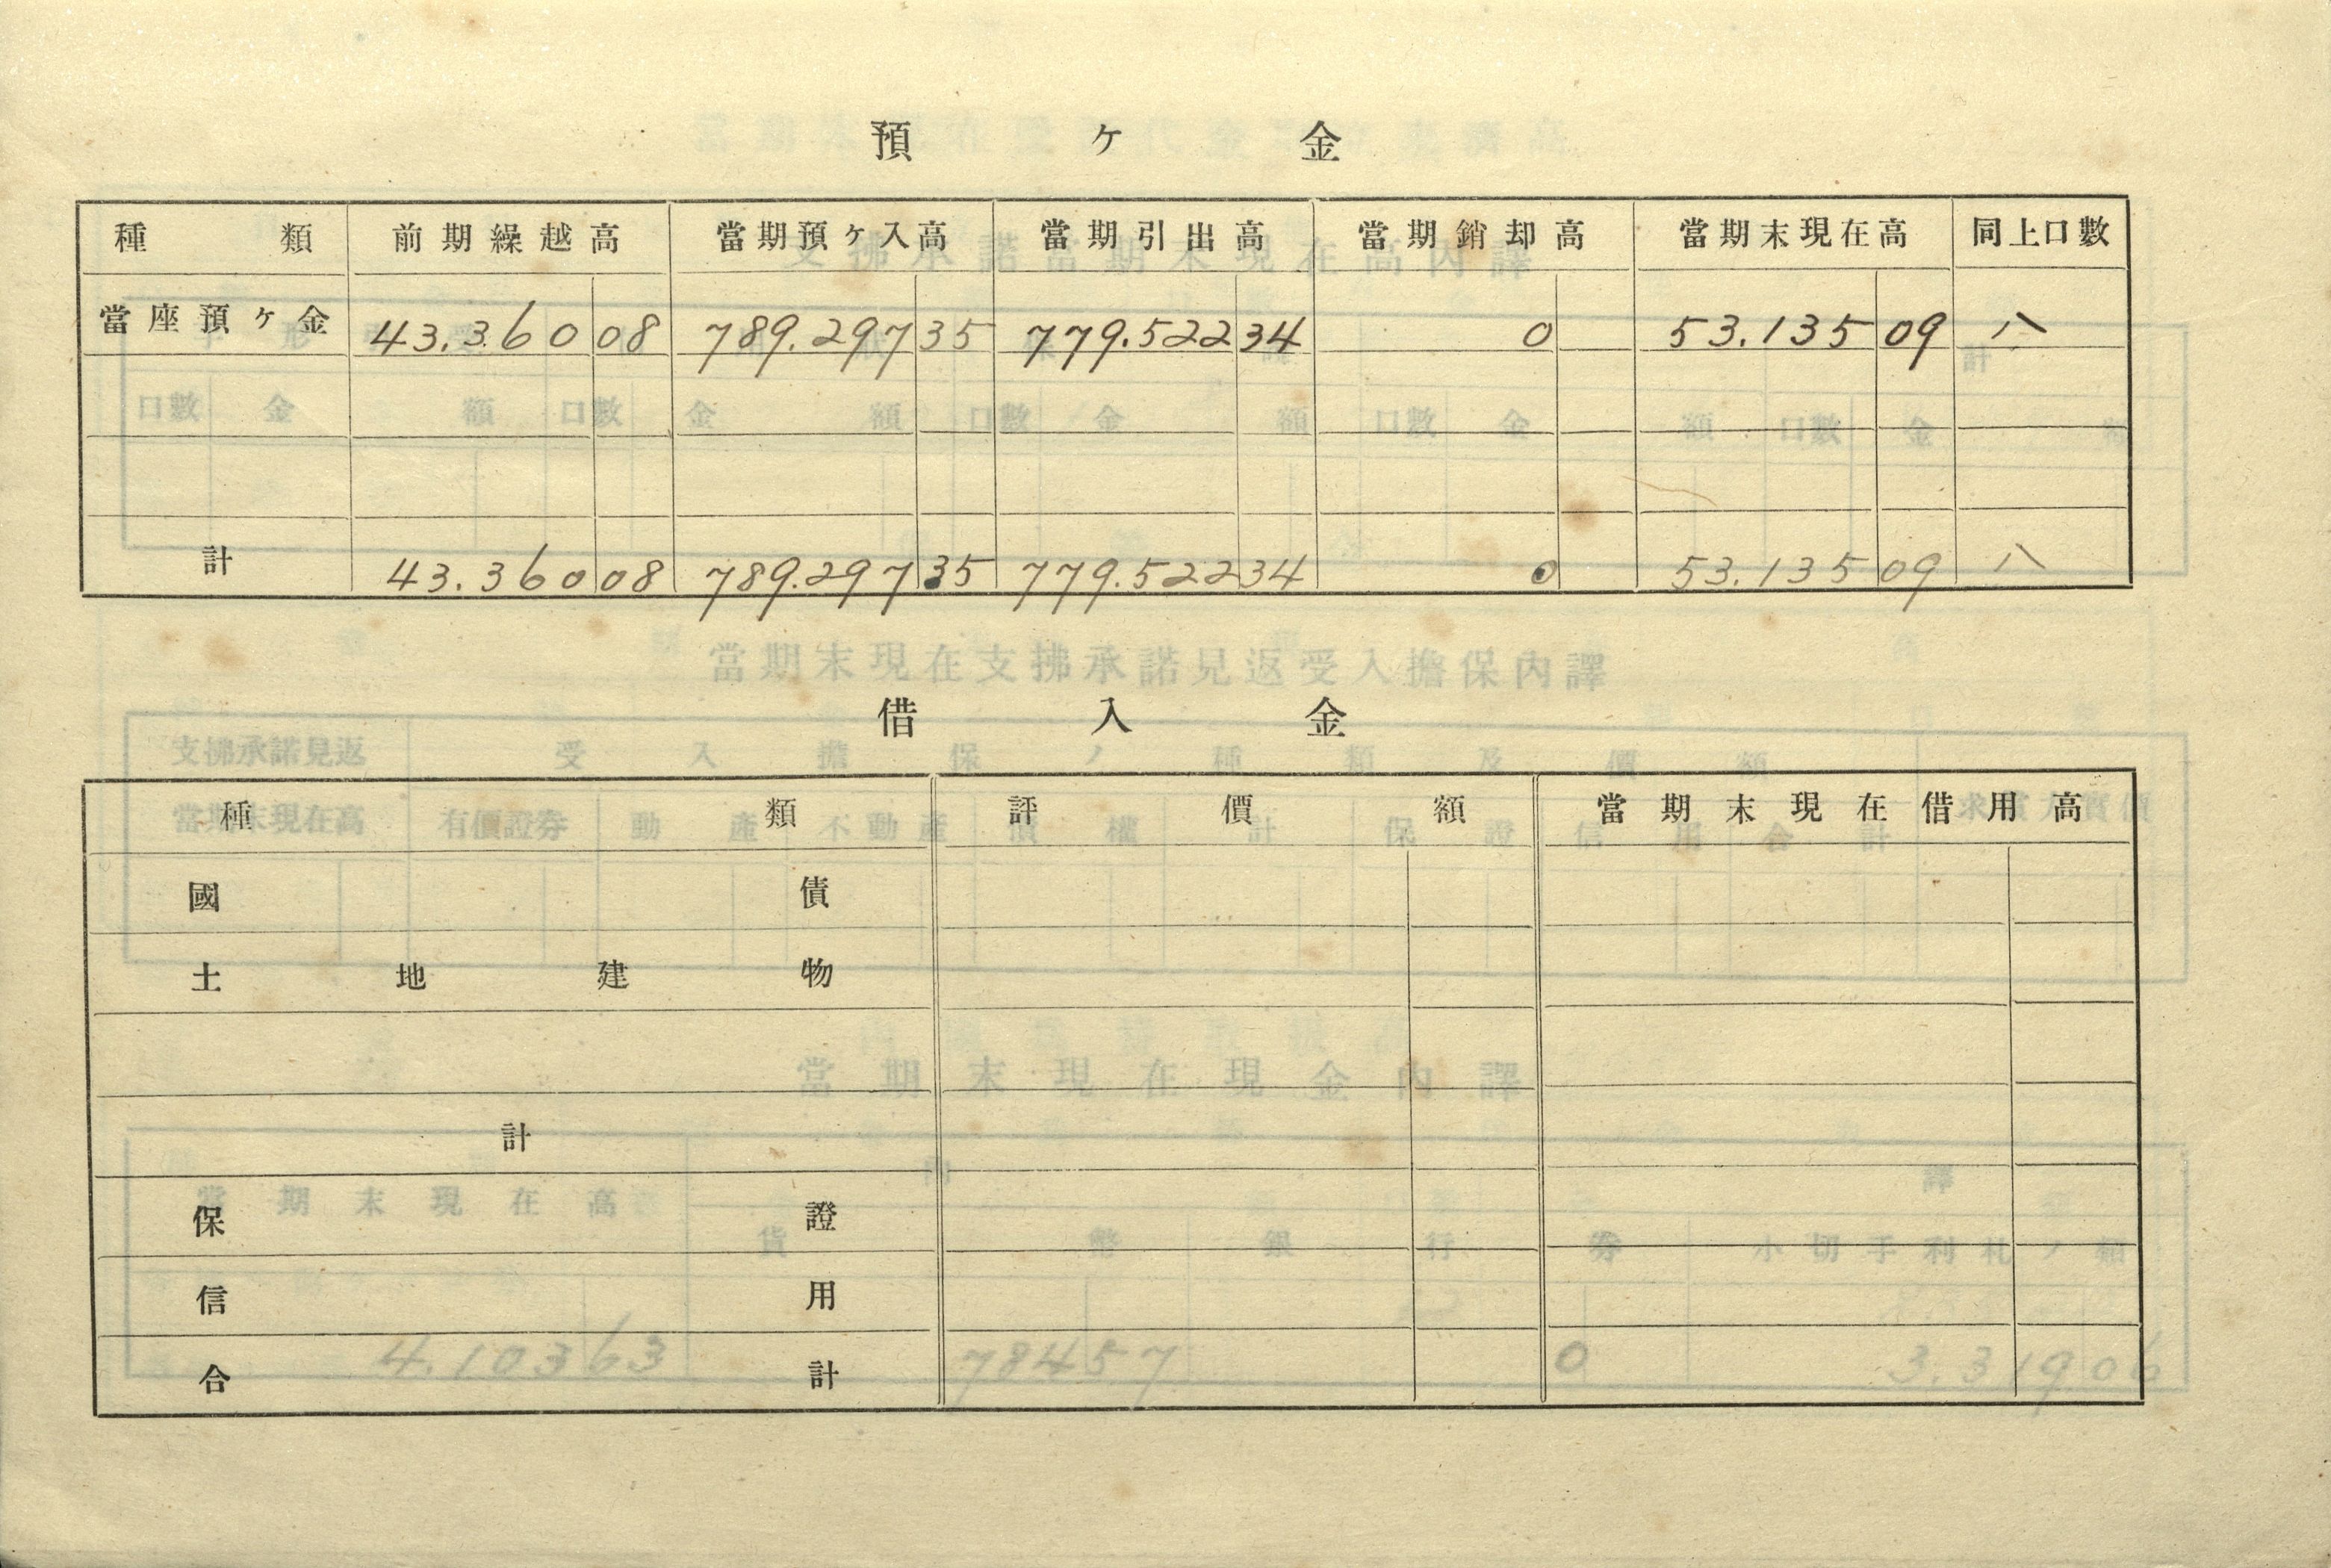 預ヶ金
種類 前期繰越高 當期預ヶ入高 當期引出高 當期銷却高 當期末現在高 同上口數
當座預ヶ金 43.360 08 789.297 35 779.522 34 0 53.135 09 八
計 43.360 08 789.297 35 779.522 34 0 53.135 09 八
借入金
種類 評價額 當期末現在借用高
國債
土地建物
計
保證
信用
合計